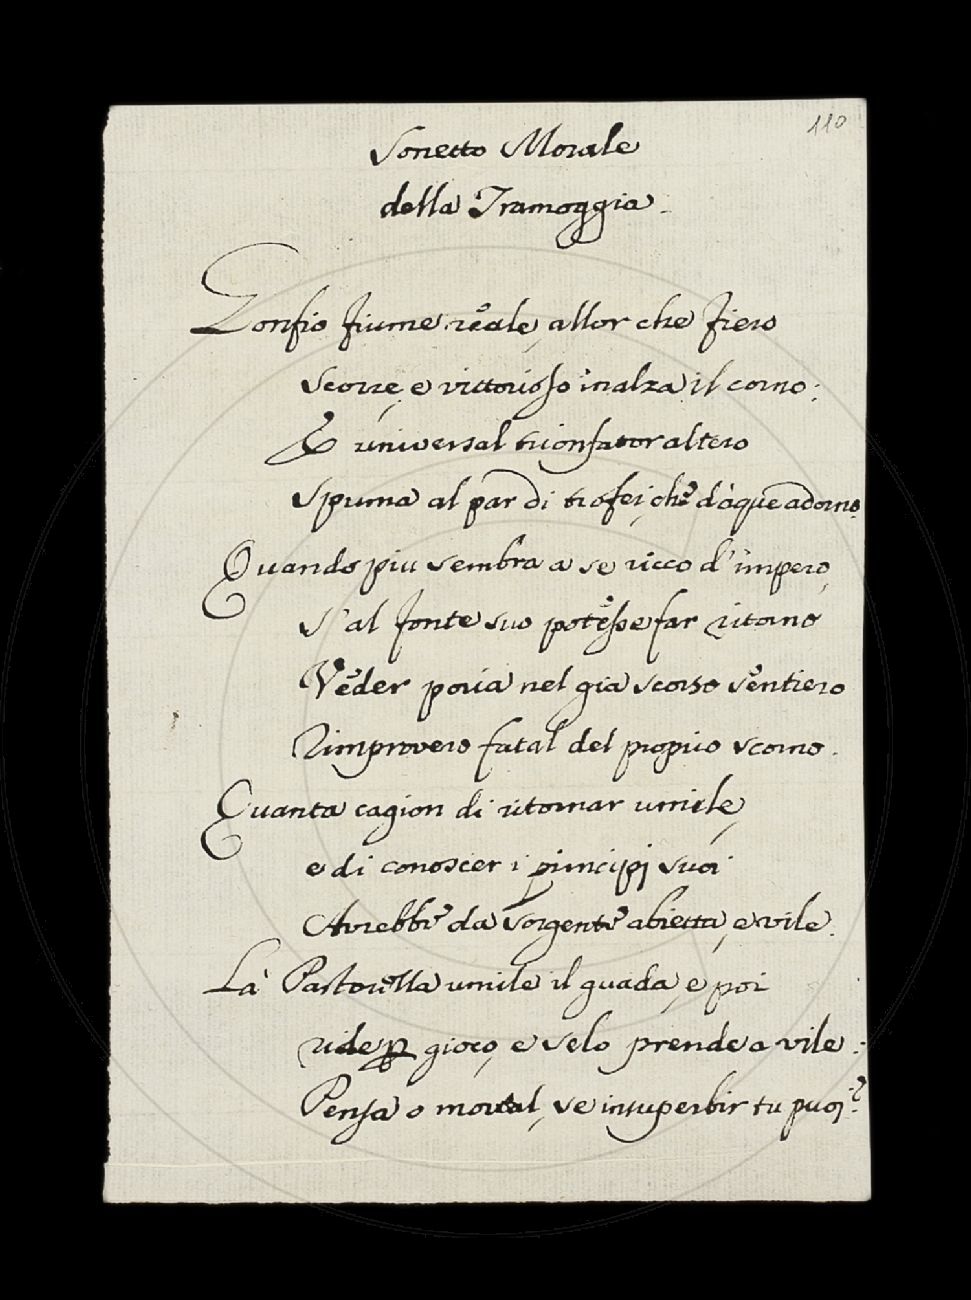 110
Sonetto Morale
della Tramoggia.
Gonfio fiume reale, allor che fiero
Scorre, e vittorioso inalza il corno:
E universal trionfator altero
Spuma al par di trofei, che d'aque adorno.
Quando piu sembra a se ricco d'impero,
S'al fonte suo potesse far ritorno
Veder poria nel gia scorso sentiero
Rimprovero fatal del proprio scorno.
Quanta cagion di ritornar umile,
e di conoscer i principj suoi
Avrebbe da sorgente abietta, e vile.
Là Pastorella umile il guada, e poi
ride p gioco, e selo prende a vile:
Pensa o mortal, se insuperbir tu puoj?